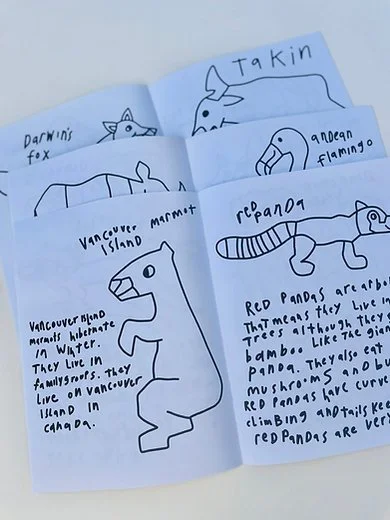 Takin
Darwin's
fox
andean
flamingo
Vancouver
Island marmot
Vancouver Island
marmots hibernate
in winter.
They Live in
family groups. they
Live on Vancouver
Island in
canada.
red panda
RED PanDas are
That means they Live
Trees although they
bamboo Like The
panda. They also eat
mushrooms and
RED PanDas have
climbing and tails
red Pandas are